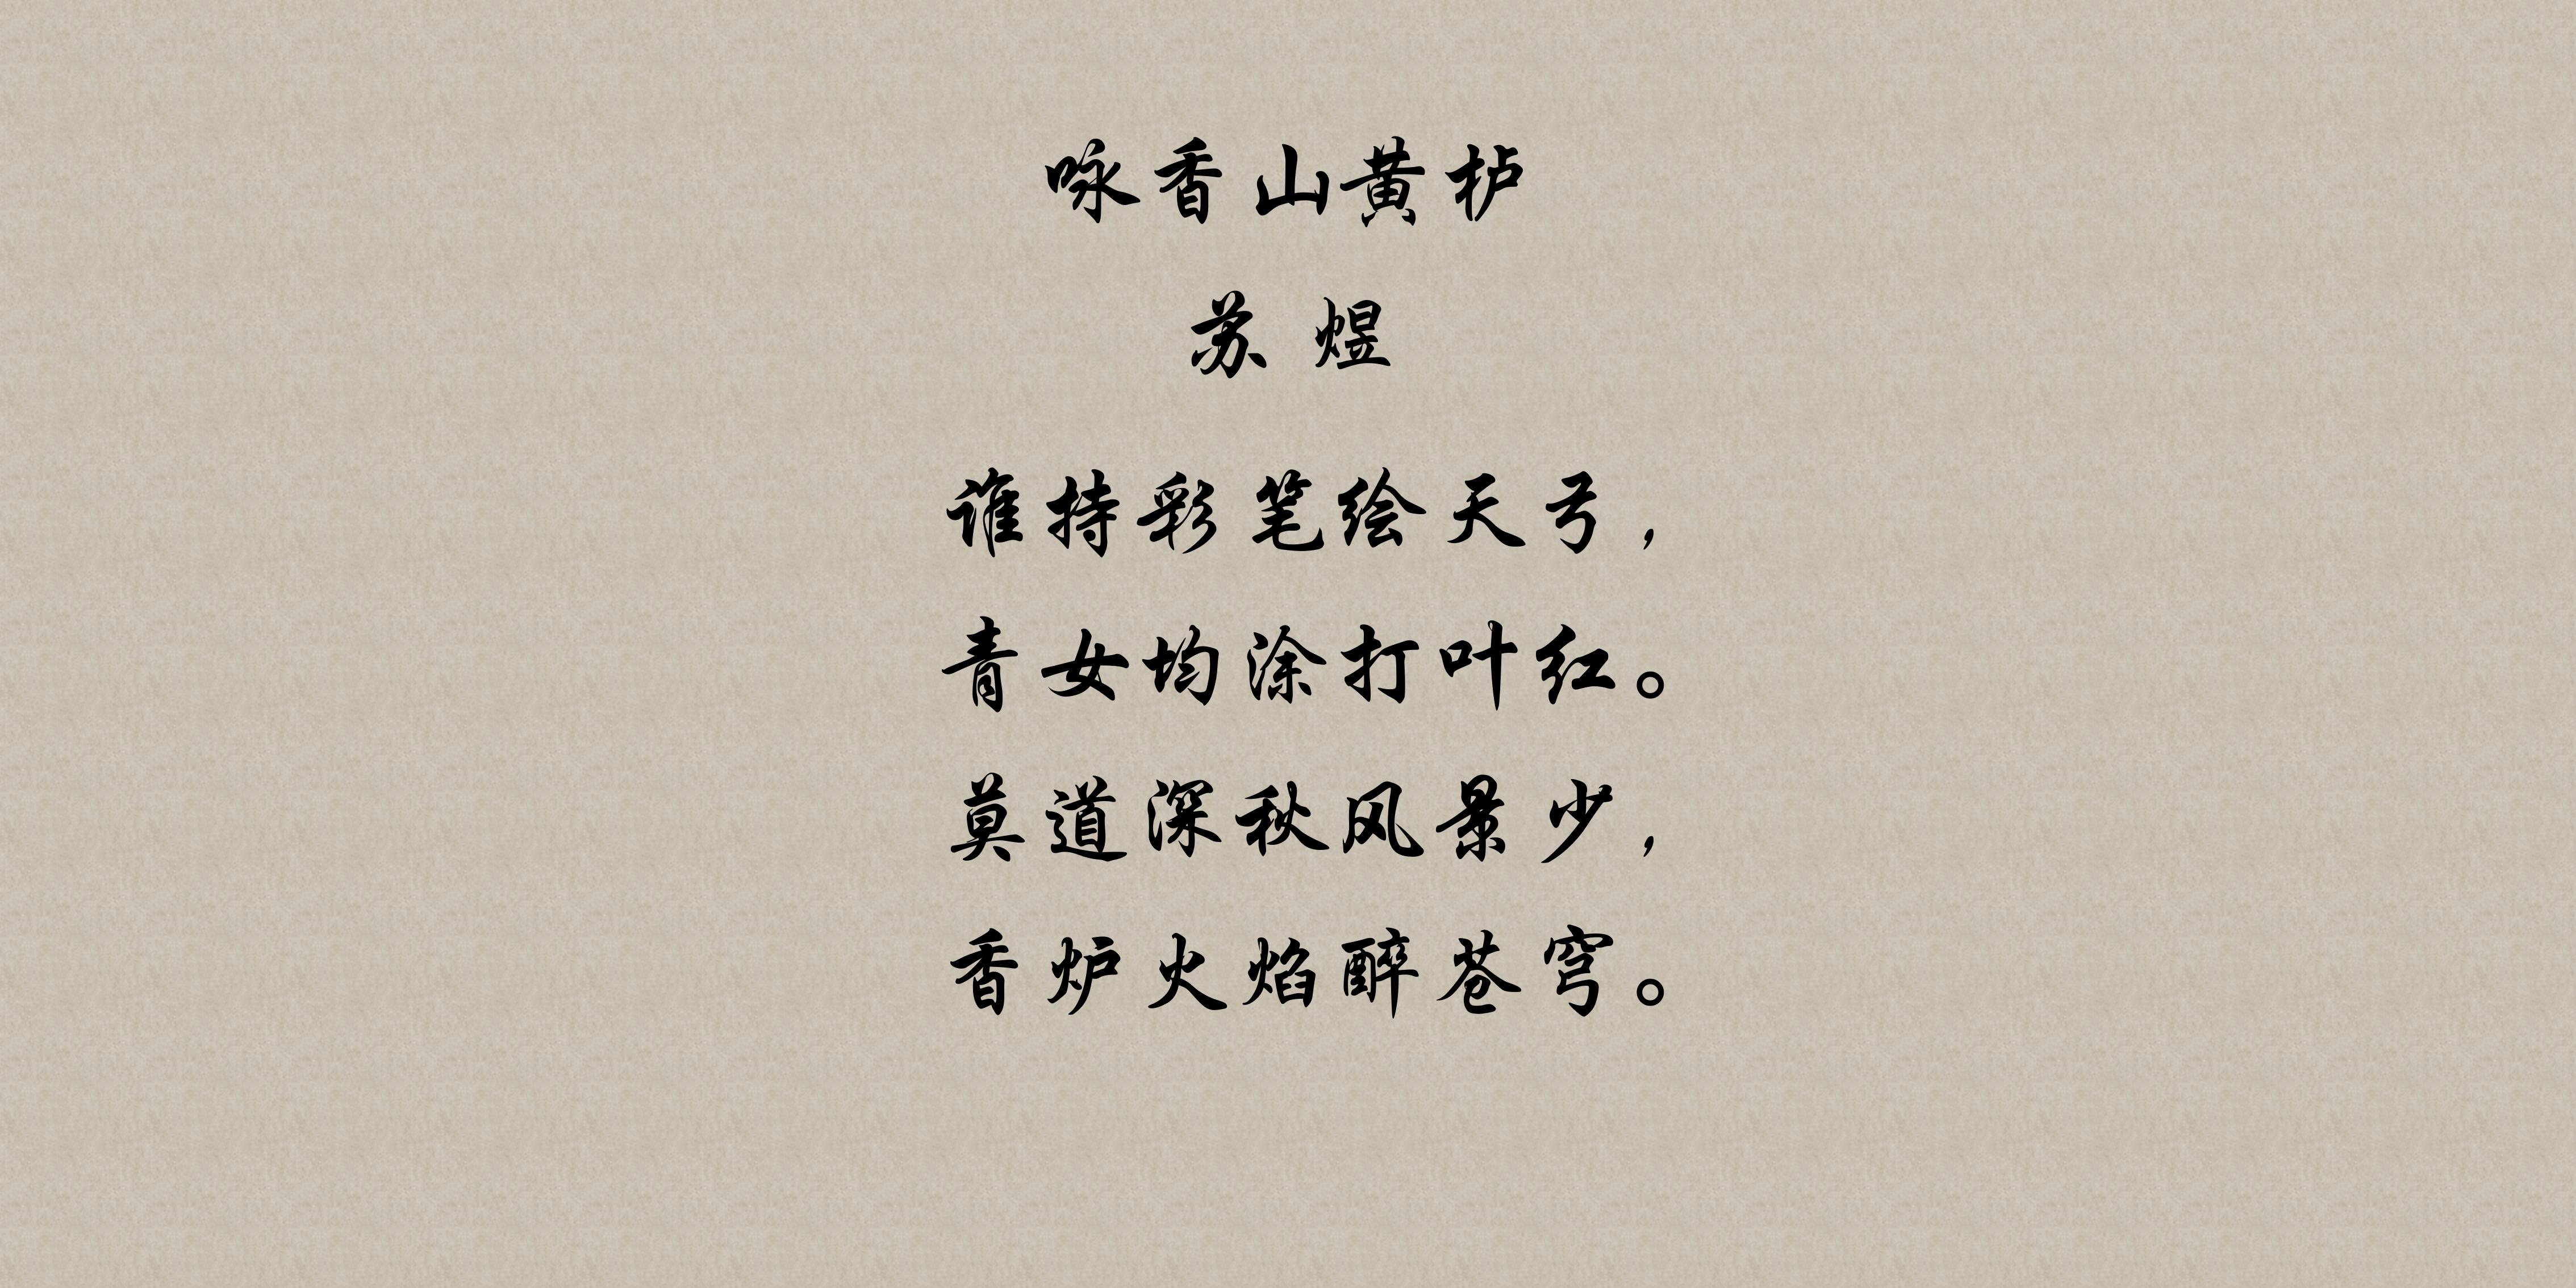 咏香山黄栌
苏煜
谁持彩笔绘天弓，
青女均涂打叶红。
莫道深秋风景少，
香炉火焰醉苍穹。